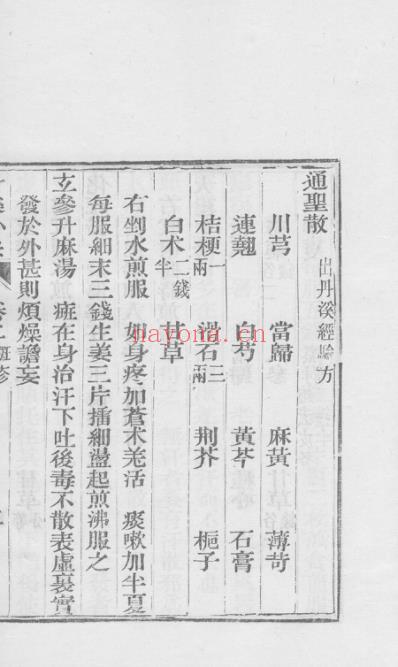 通聖散 出丹溪經驗方
川芎 當歸 麻黃 薄苛
連翹 白芍 黃芩 石膏
桔梗一兩 滑石三兩 荆芥 梔子
白朮二錢半 甘草
右剉水煎服 如身疼加蒼朮羌活 痰嗽加半夏
每服細末三錢生姜三片擂細盪起煎沸服之
玄參升麻湯 癍在身治汗下吐後毒不散表虛裏實
發於外甚則煩燥譫妄
卷二 斑疹
nayona.cn